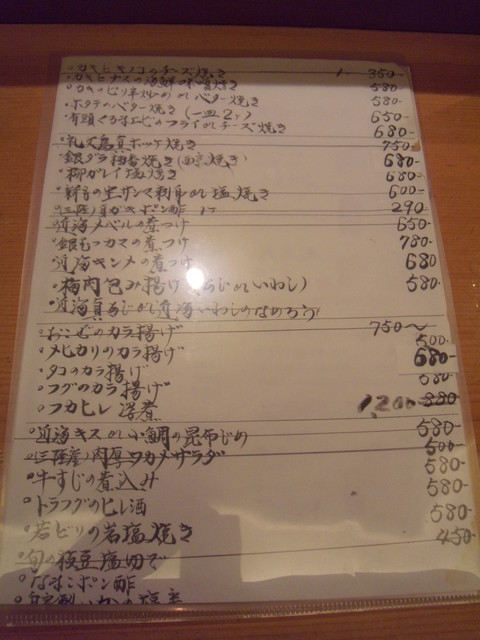 ・カキとキノコのチーズ焼き 1ヶ 350-
・カキとナスの海鮮 焼き 580-
・カキのピリ辛炒め orバター焼き 580-
・ホタテのバター焼き(一皿2ヶ) 650-
・有頭くるまエビのフライorチーズ焼き 680-
・礼文島真ホッケ焼き 750-
・銀ダラ柚香焼き(西京焼き) 680-
・柳ガレイ塩焼き 680-
・新子の生サンマ刺身or塩焼き 600-
・三陸産真ガキポン酢 1ヶ 290-
・近海メバルの煮つけ 650-
・銀ムツカマの煮つけ 780-
・近海キンメの煮つけ 680
・梅肉包み揚げ(真あじorいわし) 580-
・近海真あじor近海いわしのなめろう
・おこぜのカラ揚げ 750〜
・メヒカリのカラ揚げ 500-
・タコのカラ揚げ 680-
・フグのカラ揚げ 580-
・フカヒレ 煮 1,200- 880-
・近海キスor小鯛の昆布じめ 580-
・三陸産肉厚ワカメサラダ 500-
・牛すじの煮込み 580-
・トラフグのヒレ酒 580-
・若ドリの岩塩焼き 450-
・旬の枝豆塩ゆで
・なまこポン酢
・自家製いかの塩辛